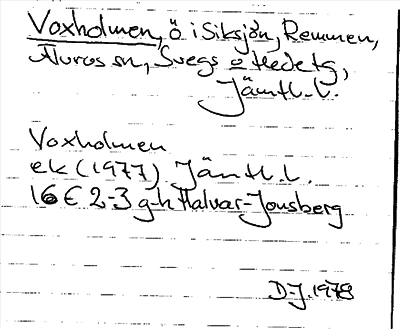 Voxholmen, ö i Siksjön, Remmen,
Älvros sn, Svegs o Hede tg,
Jämtl. l.
Voxholmen
ek (1977) Jämtl. l.
16 E 2-3 g-h Halvar-Jonsberg
D.J. 1978